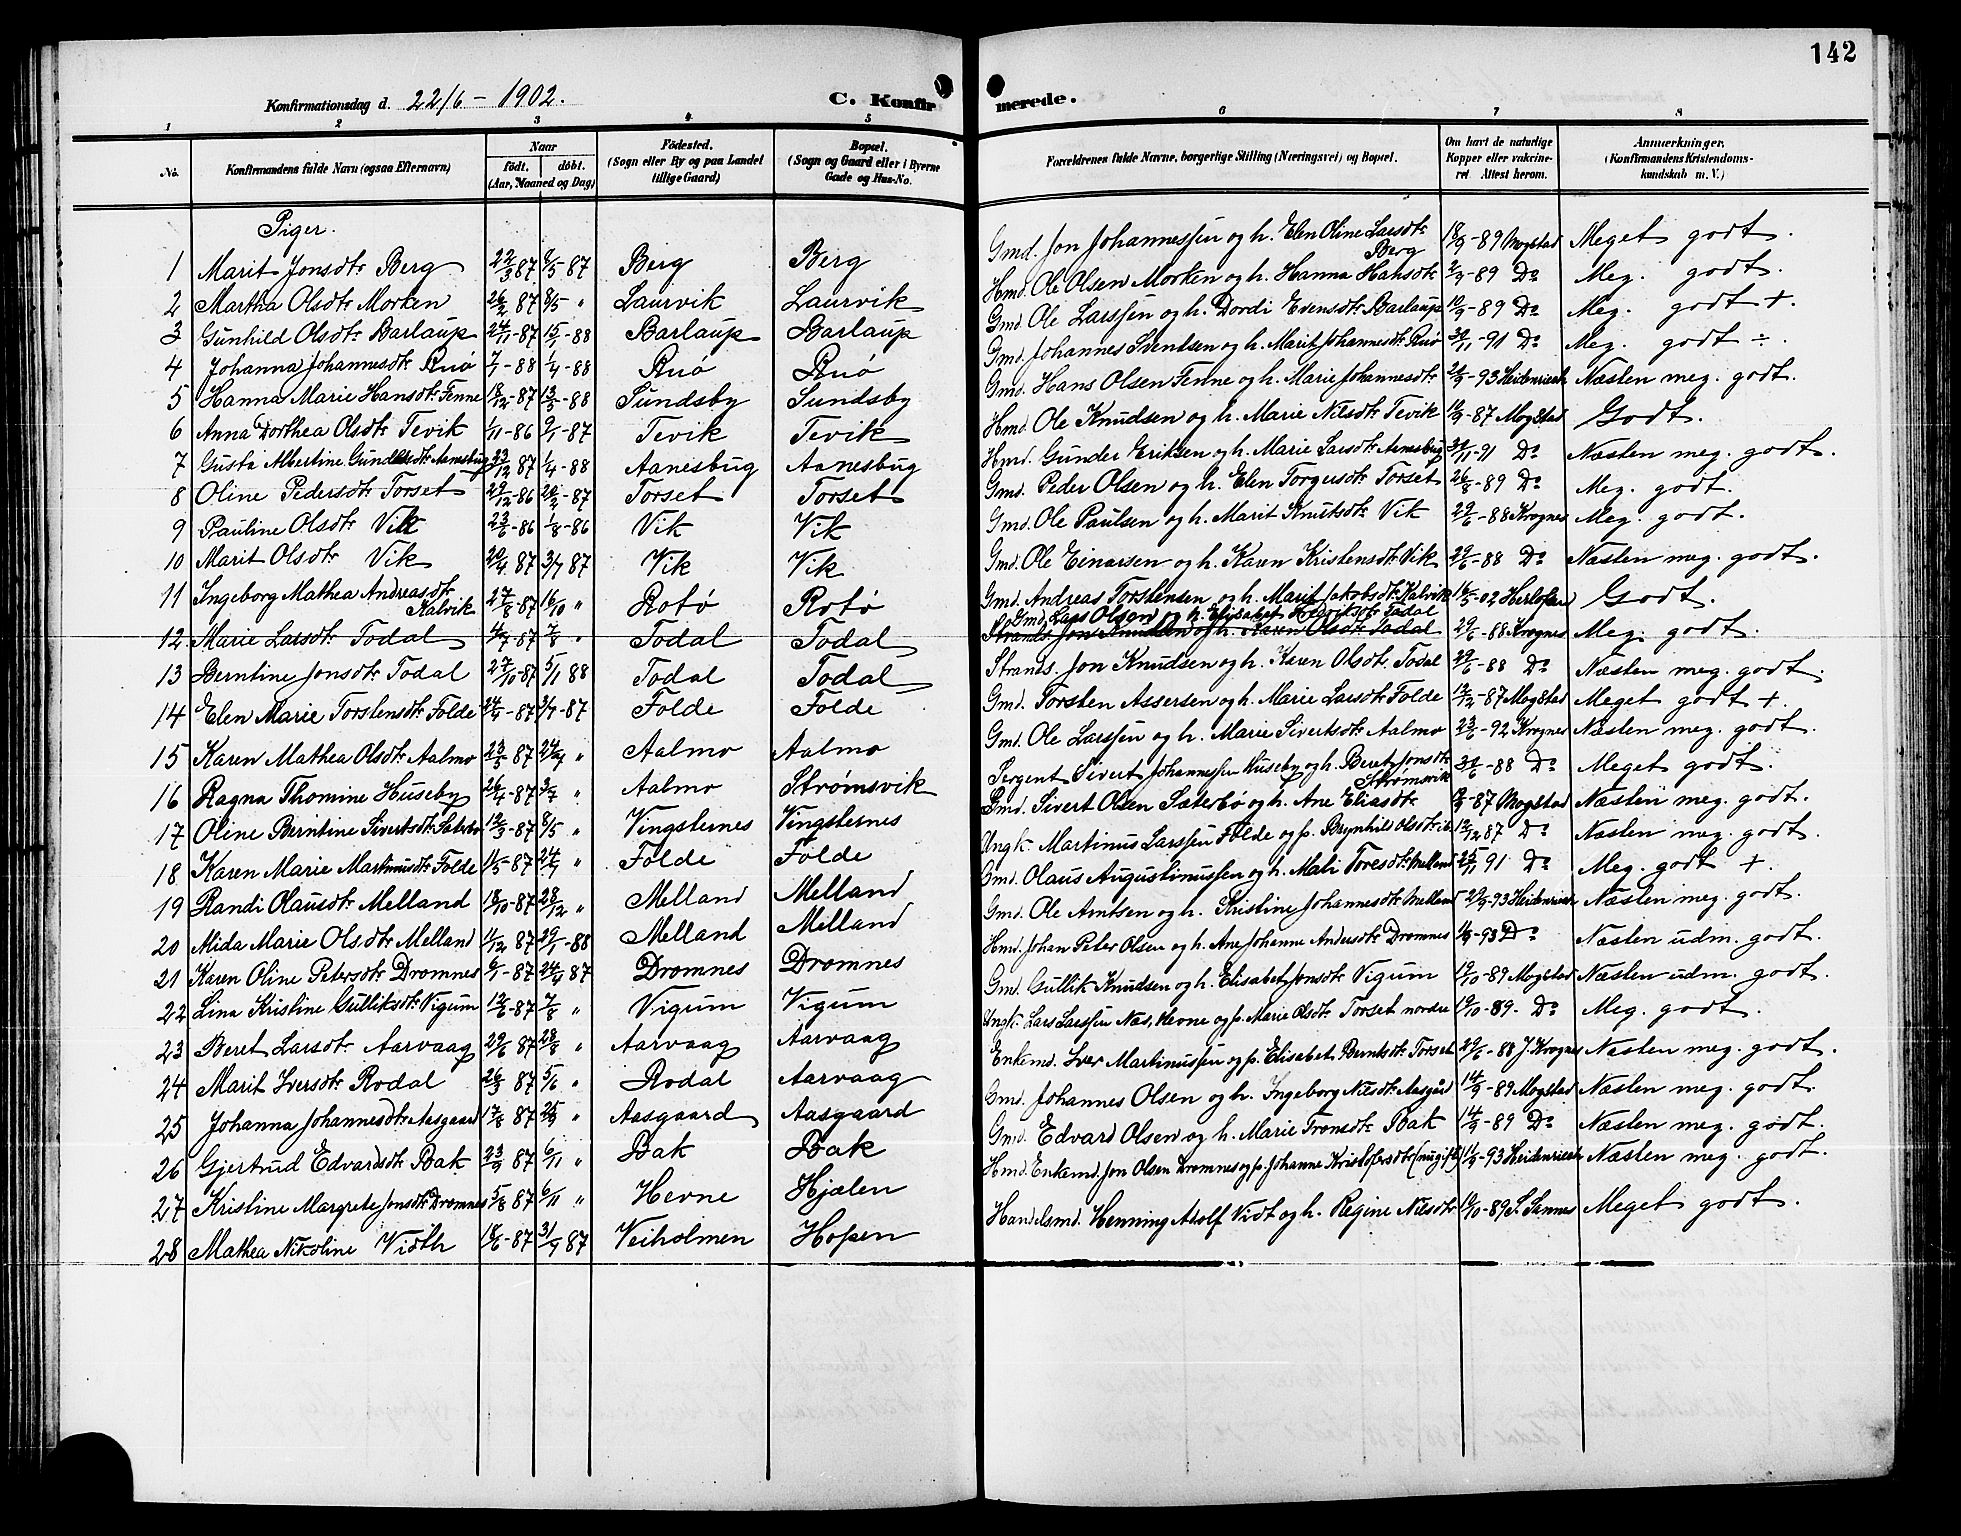 142
Konfirmationsdag d. 22/6 - 1902.
C. Konfirmerede.
1 2 3 4 5 6 7 8
No. Konfirmandens fulde Navn (ogsaa Efternavn) Naar født. døbt. (Aar, Maaned og Dag) Födested. (Sogn eller By og paa Landet tillige Gaard) Bopæl. (Sogn og Gaard eller i Byerne Gade og Hus-No. Forældrenes fulde Navne, borgerlige Stilling (Næringsvei) og Bopæl. Om havt de naturlige Kopper eller vakcineret. Attest herom. Anmærkninger. (Konfirmandens Kristendomskundskab m. V.)
Piger.
1 Marit Jonsdtr Berg 22/3 87 8/5-87 Berg Berg Gmd. Jon Johannessen og h. Elen Oline Larsdtr Berg 18/9-89 Mogstad Meget godt.
2 Martha Olsdtr Morken 26/2 87 8/5 " Laurvik Laurvik Hmd. Ole Olsen Morken og h. Hanna Hansdtr -89 Do Meg. godt.
3 Gunhild Olsdtr Barlaup 24/11-87 15/1-88 Barlaup Barlaup Gmd. Ole Larssen og h. Dordi Evensdtr Barlaup 10/9-89 Do Meg. godt +.
4 Johanna Johannesdtr Ruø 7/1-88 1/4-88 Ruø Ruø Gmd. Johannes Sventsen og h. Marit Johannesdtr Ruø 30/11-91 Do Meg. godt ÷.
5 Hanna Marie Hansdtr Fenne 18/12-87 13/5-88 Sundsby Sundsby Gmd. Hans Olsen Fenne og h. Marie Johannesdtr -93 Heidenrieich Næsten meg. godt.
6 Anna Dorthea Olsdtr Tevik 1/11-86 9/1-87 Tevik Tevik Hmd. Ole Knudsen og h. Marie Nilsdtr Tevik 10/9-87 Mogstad Godt.
7 Gusta Albertine Gundersdtr Aanesbug 23/12 87 1/4-88 Aanesbug Aanesbug Hmd. Gunder Eriksen og h. Marie Larsdtr Aanesbug 30/11-91 Do Næsten meg. godt.
8 Oline Pedersdtr Torset 29/12-86 20/2-87 Torset Torset Gmd. Peder Olsen og h. Elen Torgersdtr Torset 26/8-89 Do Meg. godt.
9 Pauline Olsdtr Vik 23/6-86 1/8-86 Vik Vik Gmd. Ole Paulsen og h. Marit Knutsdtr Vik 29/6-88 Krognes Meg. godt.
10 Marit Olsdtr Vik 20/4 87 3/7 87 Vik Vik Gmd. Ole Einarsen og h. Karen Kristensdtr Vik 29/6-88 Do Næsten meg. godt.
11 Ingeborg Mathea Andreasdtr Kalvik 27/8-87 16/10 " Rotø Rotø Gmd. Andreas Torstensen og h. Marit Jakobsdtr Kalvik 16/5-02 Godt.
12 Marie Larsdtr Todal 4/7-87 7/8 " Todal Todal Gmd. Lars Olsen og h. Elisabet Todal Strands. Jon Knudsen og h. Karen Olsdtr Todal 29/6-88 Krognes Meg. godt.
13 Berntine Jonsdtr Todal 27/10-87 5/1 88 Todal Todal Strands. Jon Knudsen og h. Karen Olsdtr Todal 29/6-88 Do Næsten meg. godt.
14 Elen Marie Torstensdtr Folde 24/4-87 3/7-87 Folde Folde Gmd. Torsten Assersen og h. Marie Larsdtr Folde 12/12-87 Mogstad Meget godt +.
15 Karen Mathea Olsdtr Aalmo 23/5-87 " Aalmo Aalmo Gmd. Ole Larssen og h. Marie Sivertsdtr Aalmo 23/6-92 Krognes Næsten meg. godt.
16 Ragna Thomine Huseby 26/4-87 3/7 " Aalmo Strømsvik Sergent Sivert Johannessen Huseby og h. Beret Jonsdtr Strømsvik -88 Do Meget godt.
17 Oline Berntine Sivertsdtr Sæterbø 12/3-87 8/5 " Vingsternes Vingsternes Gmd. Sivert Olsen Sæterbø og h. Ane Eliasdtr -87 Mogstad Næsten meg. godt.
18 Karen Marie Martinusdtr Folde 11/5-87 24/7 " Folde Folde Ungk. Martinus Larssen Folde og p. Brynhild Olsdtr ib. 12/12 87 Do Næsten meg. godt.
19 Randi Olausdtr Melland 18/10-87 28/12 " Melland Melland Gmd. Olaus Augustinussen og h. Mali Toresdtr Melland 25/11 91 Do Meg. godt +.
20 Mida Marie Olsdtr Melland 11/12 87 29/1-88 Melland Melland Gmd. Ole Arntsen og h. Kristine Johannesdtr Melland 20/9-93 Heidenrieich Næsten meg. godt.
21 Karen Oline Petersdtr Dromnes 6/1-87 24/4 87 Dromnes Dromnes Hmd. Johan Peter Olsen og h. Ane Johanne Andersdtr Dromnes -93 Do Næsten udm. godt.
22 Lina Kristine Gulliksdtr Vigum 12/6-87 7/8 " Vigum Vigum Gmd. Gullik Knudsen og h. Elisabet Jonsdtr Vigum 19/10-89 Mogstad Næsten udm. godt.
23 Beret Larsdtr Aarvaag 29/6 87 28/8 " Aarvaag Aarvaag Ungk. Lars Larssen Næs, Hevne og p. Marie Olsdtr Torset nordre 19/10-89. Do Meg. godt.
24 Marit Iversdtr Rodal 26/3 87 5/6 " Rodal Aarvaag Enkemd. Iver Martinussen og p. Elisabet Berntsdtr Torset 29/6-88 J. Krognes Næsten meg. godt.
25 Johanna Johannesdtr Aasgaard 17/8 87 25/9 " Aasgaard Aasgaard Gmd. Johannes Olsen og h. Ingeborg Nilsdtr Aasgård 14/9-89 Mogstad Næsten meg. godt.
26 Gjertrud Edvardsdtr Bak 23/9 87 6/11 " Bak Bak Gmd. Edvard Olsen og h. Marie Tronsdtr Bak 14/9-89 Do Næsten meg. godt.
27 Kristine Margrete Jonsdtr Dromnes 5/8 87 6/11 " Hevne Hjælen Hmd. Enkemd. Jon Olsen Dromnes og p. Johanne Kristofersdtr (nu gift) -93 Heidenrieich Næsten meg. godt.
28 Mathea Nikoline Vidth 18/6-87 31/7 87 Veiholmen Hopen Handelsmd. Henning Adolf Vidt og h. Regine Nilsdtr 19/10-89 S. Sannes Meget godt.